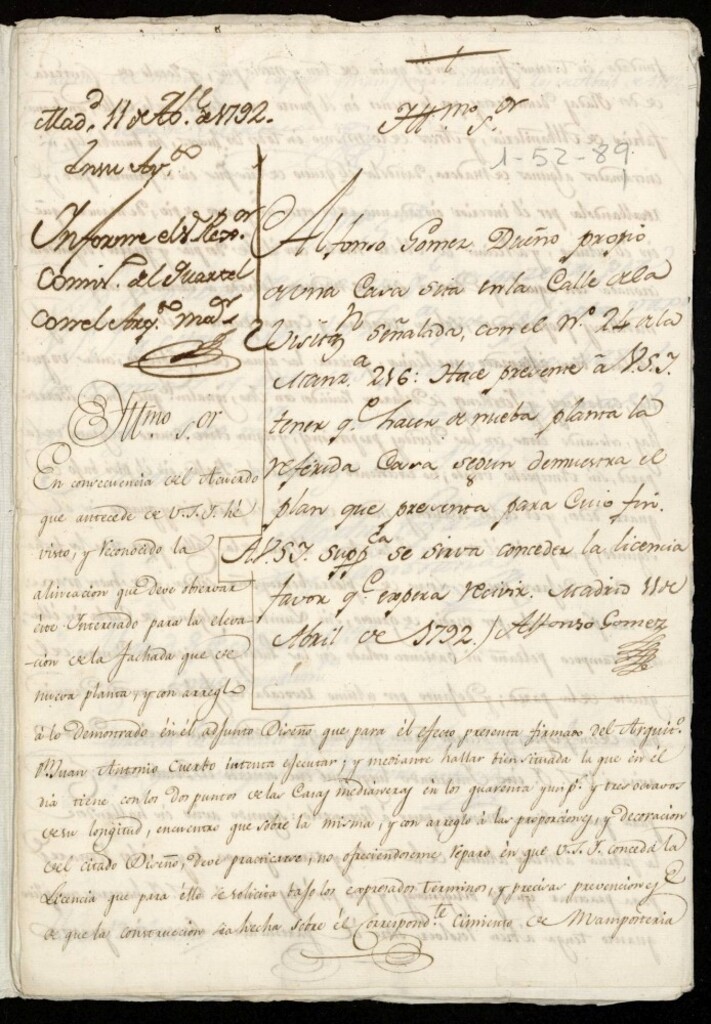 Mad.d 11 de Ab.l de 1792.
En su Ay.to
Informe el S.r Rexo.or
Comis.o del Quartel
con el Arq.to may.r
Ill.mo S.or
1-52-89
Alfonso Gomez Dueño propio
de una Casa sita en la Calle de la
Visitaz.n señalada, con el N.o 24 de la
Manz.a 216: Hace presente â V.S.I.
tener q.e hacer de nueba planta la
referida Casa segun demuestra el
plan que presenta para Cuio fin.
A V.S.I. supp.ca se sirva conceder la licencia
favor q.e espera recivir. Madrid 11 de
Abril de 1792. / Alfonso Gomez
Ill.mo S.or
En consecuencia del Acuerdo
que antecede de V.S.I. hé
visto, y reconocido la
alineacion que deve observar
este Interesado para la eleva-
cion de la fachada que de
nueva planta, y con arreglo
à lo demostrado en él adjunto Diseño que para él efecto presenta firmado del Arquit.o
D.n Juan Antonio Cuerbo intenta ejecutar; y mediante hallar bien situada la que en él
dia tiene con los dos puntos de las Casas medianeras en los quarenta y un p.s y tres octavos
de su longitud, encuentro que sobre la misma, y con arreglo à las proporciones, y decoracion
del citado Diseño, deve practicarse, no ofreciendoseme reparo en que V.S.I. conceda la
Licencia que para ello se solicita bajo los expresados terminos, y precisas prevenciones
de que la construccion sea hecha sobre él correspond.te Cimiento de Mamposteria